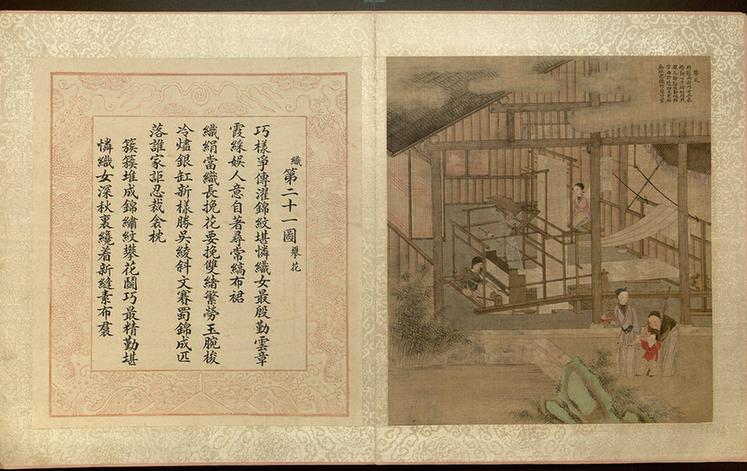 織第二十一圖攀花
巧樣爭傳濯錦紋堪憐織女最殷勤雲章
霞綵娛人意自著尋常縞布裙
織絹當織長挽花要挽雙緒繁勞玉腕梭
冷燼銀缸新樣勝吳綾斜文賽蜀錦成匹
落誰家詎忍裁衾枕
簇簇堆成錦繡紋攀花鬭巧最精勤堪
憐織女深秋裏纔着新縫素布裠
攀花